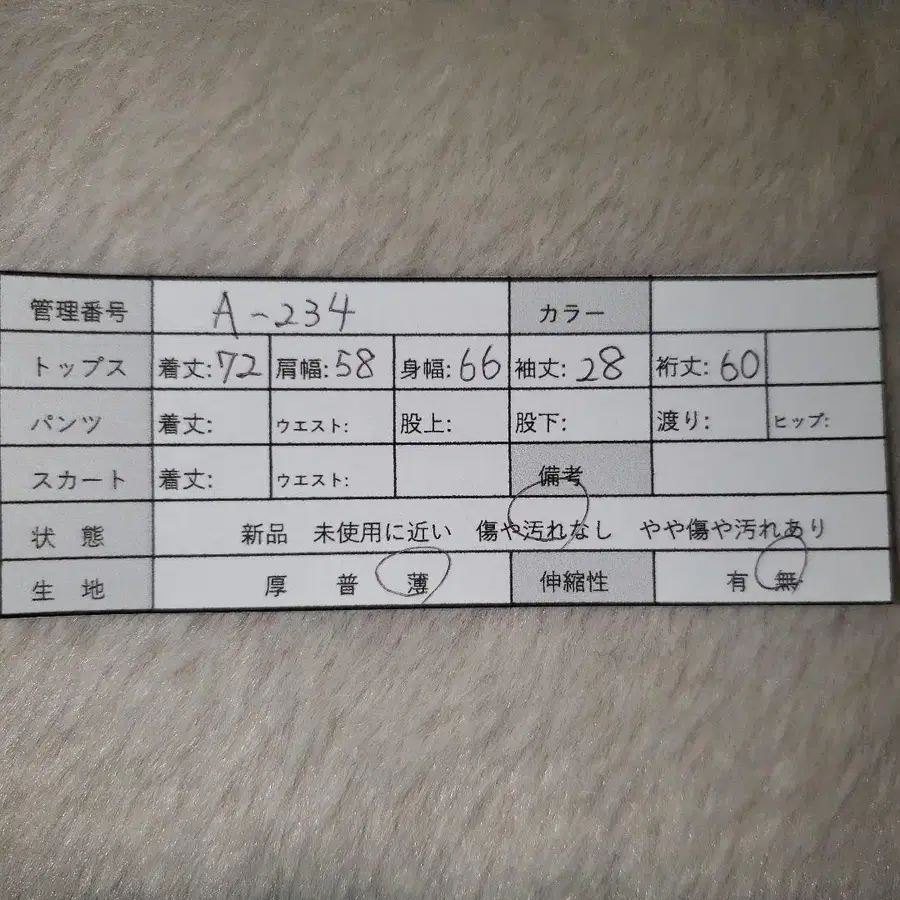 管理番号 A-234 カラー
トップス 着丈:72 肩幅:58 身幅:66 袖丈:28 裄丈:60
パンツ 着丈: ウエスト: 股上: 股下: 渡り: ヒップ:
スカート 着丈: ウエスト: 備考
状態 新品 未使用に近い 傷や汚れなし やや傷や汚れあり
生地 厚 普 薄 伸縮性 有 無